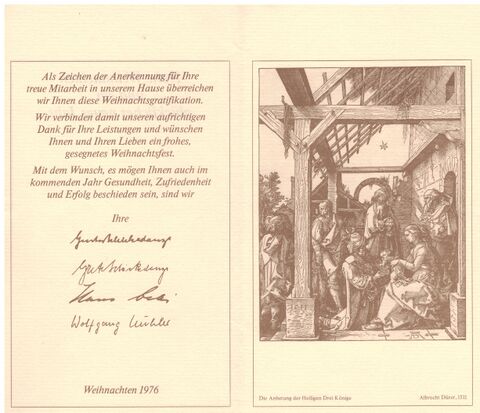 Als Zeichen der Anerkennung für Ihre
treue Mitarbeit in unserem Hause überreichen
wir Ihnen diese Weihnachtsgratifikation.
Wir verbinden damit unseren aufrichtigen
Dank für Ihre Leistungen und wünschen
Ihnen und Ihren Lieben ein frohes,
gesegnetes Weihnachtsfest.
Mit dem Wunsch, es mögen Ihnen auch im
kommenden Jahr Gesundheit, Zufriedenheit
und Erfolg beschieden sein, sind wir
Ihre
Hans
Wolfgang
Weihnachten 1976
1511
Die Anbetung der Heiligen Drei Könige
Albrecht Dürer, 1511